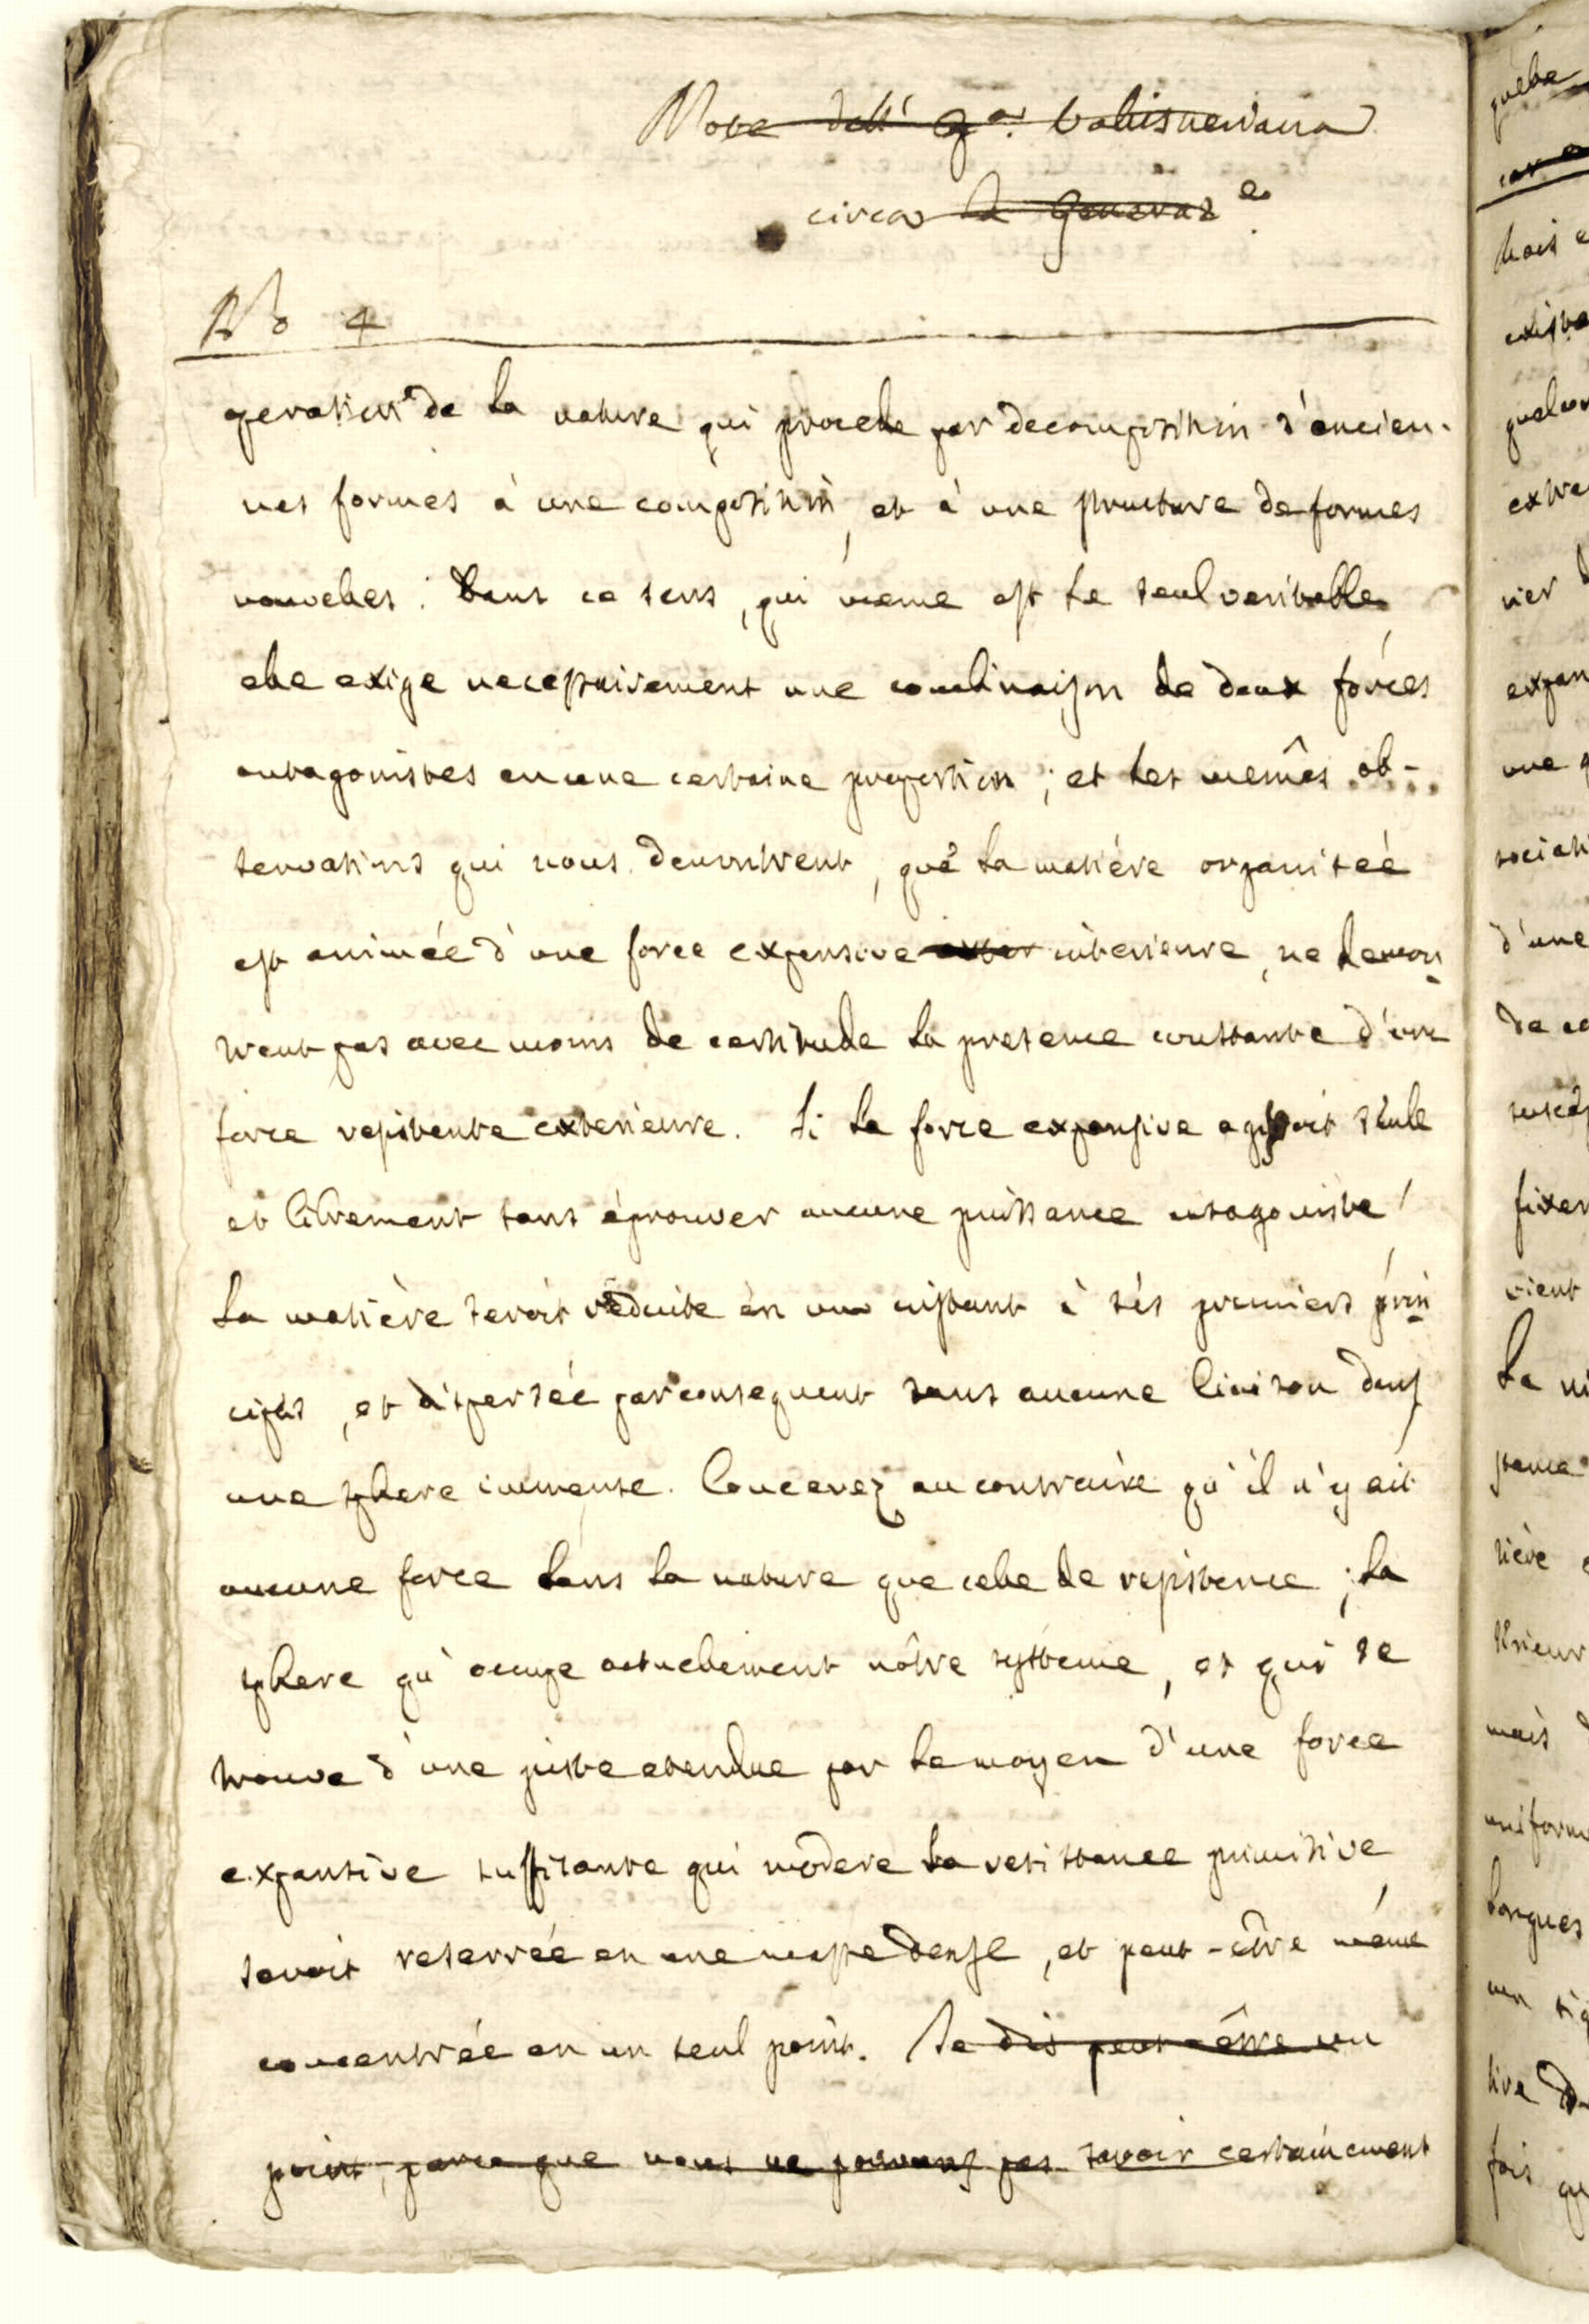 Note dell' q.ᵃ Valisneriana
circa la Generaz.ᵉ
No 4
operation de la nature qui procede par decomposition d'ancien-
nes formes à une composition, et à une structure de formes
nouvelles. Dans ce sens, qui meme est le seul veritable,
elle exige necessairement une combinaison de deux forces
antagonistes en une certaine proportion; et les mêmes ob-
servations qui nous demontrent, que la matiére organiseé
est animée d'une force expensive exter interieure, ne demon
trent pas avec moins de certitude la presence constante d'une
force resistente exterieure. Si la force expansive agissoit seule
et librement sans éprouver aucune puissance antagoniste,
la matière seroit reduite en un instant à ses premiers prin
cipes, et dispersée par consequent sans aucune liaison dans
une sphere immense. Concevez au contraire qu'il n'y ait
aucune force dans la nature que celle de resistence; la
sphere qu'occupe actuellement nôtre systeme, et qui se
trouve d'une juste etendue par le moyen d'une force
expansive suffisante qui modere la resistance primitive,
seroit reserrée en une masse dense, et peut-être même
concentrée en un seul point. Je dis peut-être un
point, parce que nous ne pouvons pas savoir certainement